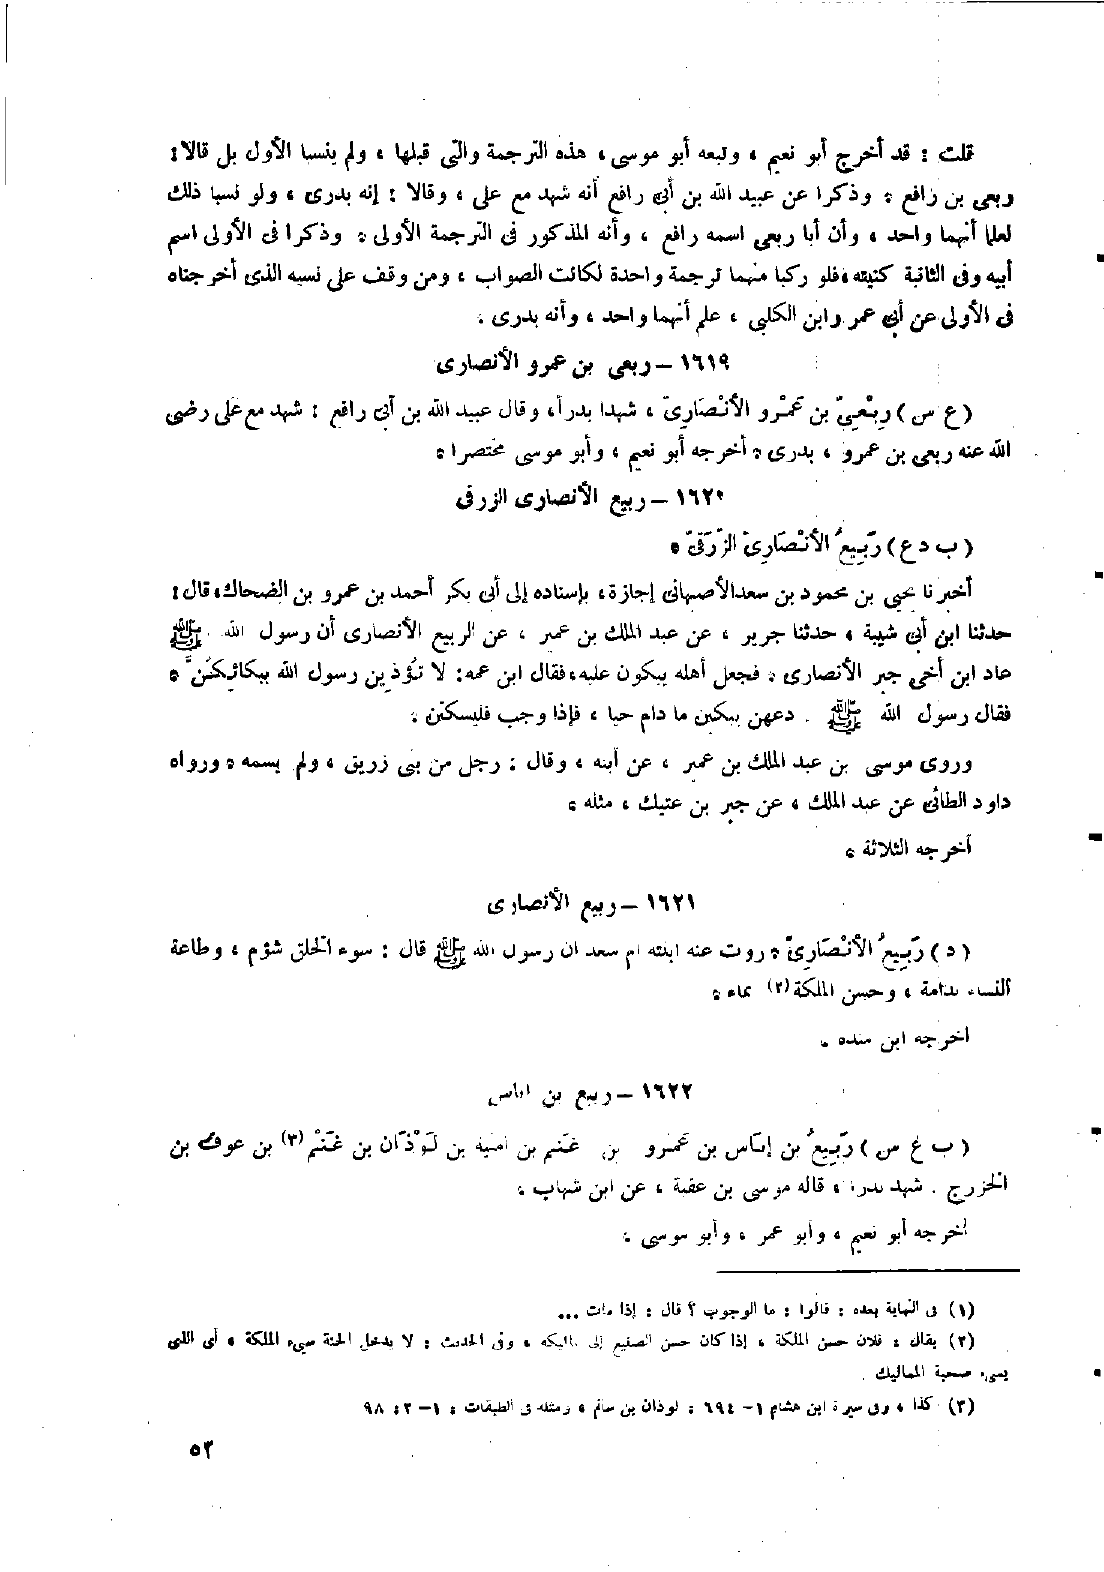 قلت : قد أخرج أبو نعيم ، وتبعه أبو موسى ، هذه الترجمة والتي قبلها ، ولم ينسبا الأول بل قالا :
ربعي بن رافع . وذكرا عن عبيد الله بن أبي رافع أنه شهد مع علي ، وقالا : إنه بدرى ، ولو نسبا ذلك
لعلما أنهما واحد ، وأن أبا ربعي اسمه رافع ، وأنه المذكور فى الترجمة الأولى . وذكرا فى الأولى اسم
أبيه وفى الثانية كنيته ، فلو ركبا منهما ترجمة واحدة لكانت الصواب ، ومن وقف على نسبه الذى أخرجناه
فى الأولى عن أبي عمر وابن الكلبي ، علم أنهما واحد ، وأنه بدرى .
١٦١٩ – ربعى بن عمرو الأنصارى
( ع س ) رِبْعيّ بن عَمْرو الأنْصَاريّ ، شهدا بدراً ، وقال عبيد الله بن أبي رافع : شهد مع على رضى
الله عنه ربعى بن عمرو ، بدرى . أخرجه أبو نعيم ، وأبو موسى مختصرا .
١٦٢٠ – ربيع الأنصارى الزرقى
( ب د ع ) رَبِيعُ الأنْصَارِيّ الزُّرَقىّ .
أخبرنا يحيى بن محمود بن سعد الأصبهانى إجازة ، بإسناده إلى أبى بكر أحمد بن عمرو بن الضحاك ، قال :
حدثنا ابن أبى شيبة ، حدثنا جرير ، عن عبد الملك بن عمير ، عن الربيع الأنصارى أن رسول الله ﷺ
عاد ابن أخى جبر الأنصارى . فجعل أهله يبكون عليه ، فقال ابن عمه : لا تُؤذين رسول الله ببكائكنّ .
فقال رسول الله ﷺ . دعهن يبكين ما دام حيا ، فإذا وجب فليسكتن .
وروى موسى بن عبد الملك بن عمير ، عن أبيه ، وقال : رجل من بنى زريق ، ولم يسمه . ورواه
داود الطائى عن عبد الملك ، عن جبر بن عتيك ، مثله .
أخرجه الثلاثة .
١٦٢١ – ربيع الأنصارى
( د ) رَبِيعُ الأنْصَارِيّ . روت عنه ابنته أم سعد أن رسول الله ﷺ قال : سوء الخلق شؤم ، وطاعة
النساء ندامة ، وحسن الملكة (٢) نماء .
أخرجه ابن منده .
١٦٢٢ – ربيع بن إياس
( ب ع س ) رَبِيعُ بن إيَاس بن عَمْرو بن غَنم بن أمية بن لَوْذَان بن غَنْم (٣) بن عوف بن
الخزرج . شهد بدراً ، قاله موسى بن عقبة ، عن ابن شهاب .
أخرجه أبو نعيم ، وأبو عمر ، وأبو موسى .
(١) فى النهاية بعده : قالوا : ما الوجوب ؟ قال : إذا مات ...
(٢) يقال : فلان حسن الملكة ، إذا كان حسن الصنيع إلى مماليكه ، وفى الحديث : لا يدخل الجنة سيىء الملكة ، أى الذى
يسىء صحبة المماليك .
(٣) كذا ، وفى سيرة ابن هشام ١ – ٦٩٤ : لوذان بن سالم ، ومثله فى الطبقات : ١ – ٢ : ٩٨
٥٢